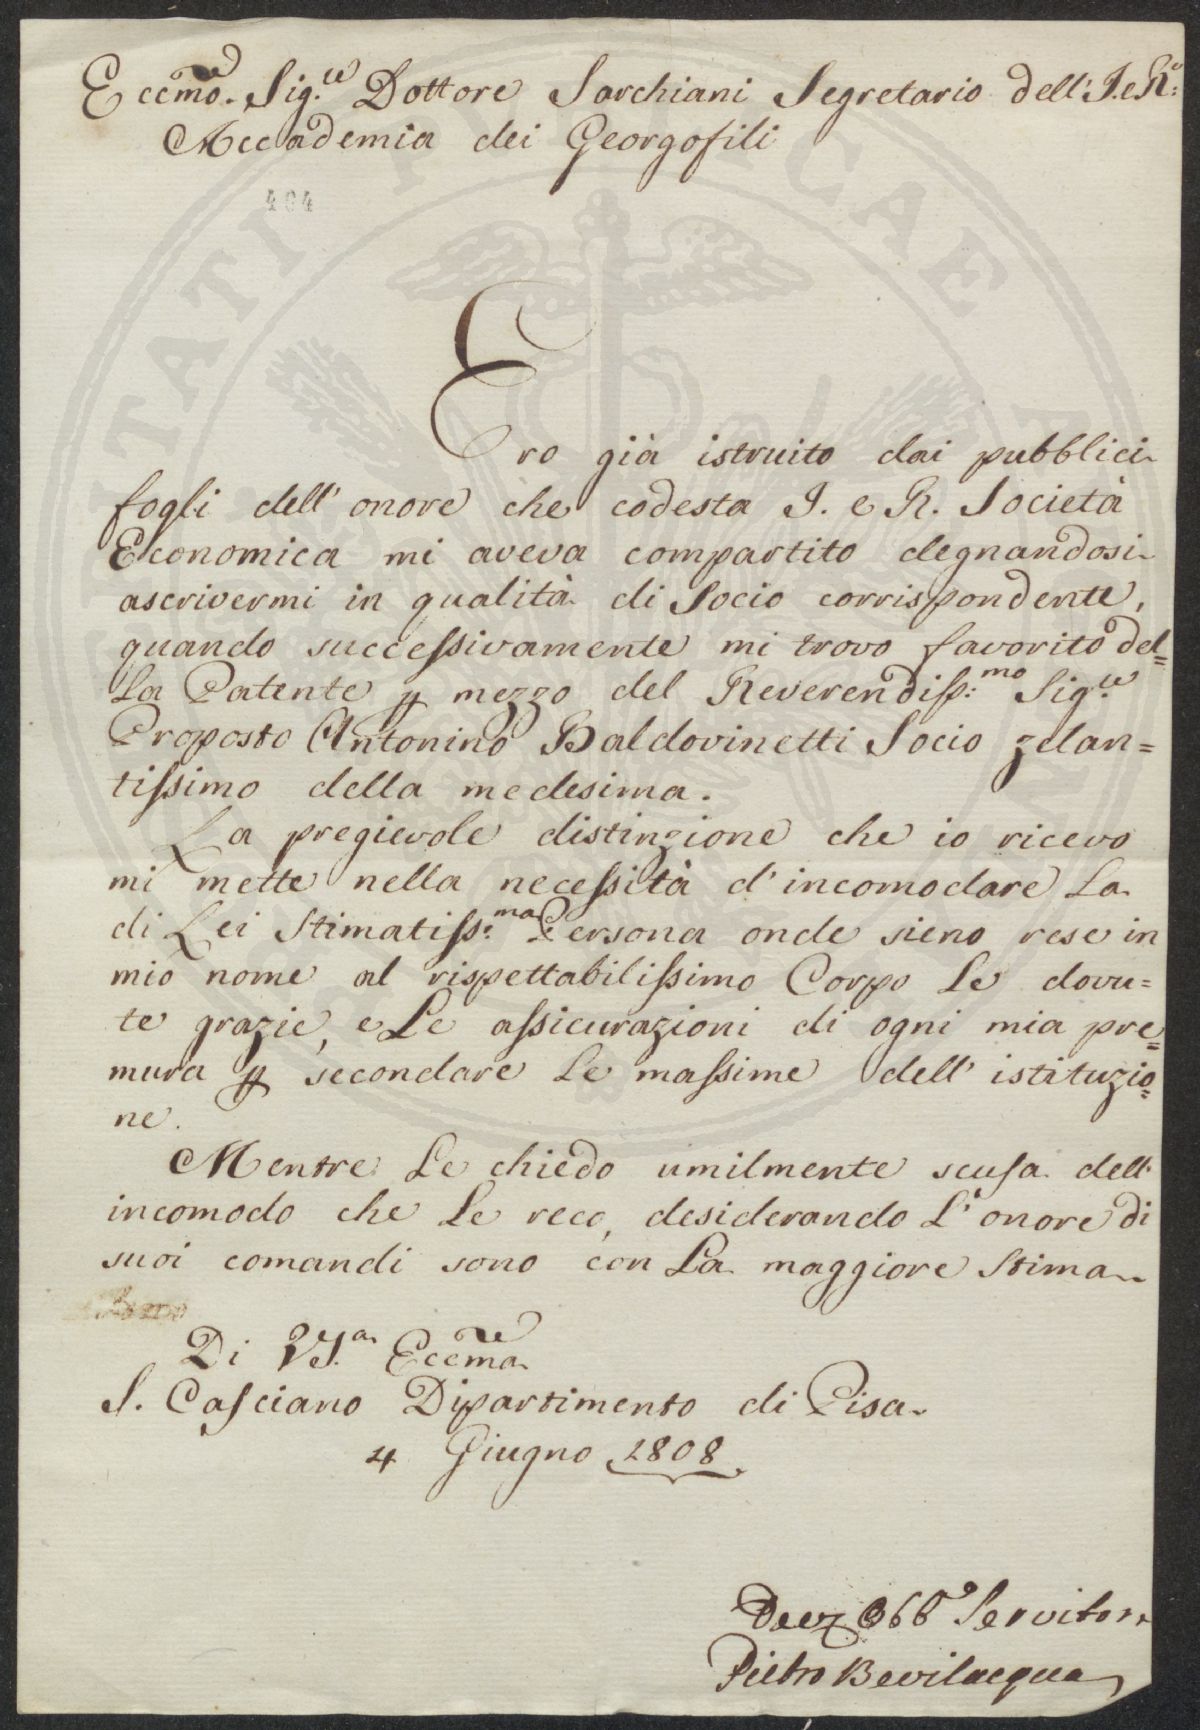 Eccmo. Sig.re Dottore Sarchiani Segretario dell'I. e R.e
Accademia dei Georgofili
404
Ero già istruito dai pubblici
fogli dell'onore che codesta I. e R. Società
Economica mi aveva compartito degnandosi
ascrivermi in qualità di Socio corrispondente,
quando successivamente mi trovo favorito del=
la Patente p mezzo del Reverendiss:mo Sig.re
Proposto Antonino Baldovinetti Socio zelan=
tissimo della medesima.
La pregievole distinzione che io ricevo
mi mette nella necessità d'incomodare la
di Lei Stimatiss:ma Persona onde sieno rese in
mio nome al rispettabilissimo Corpo le dovu=
te grazie, e le assicurazioni di ogni mia pre=
mura p secondare le massime dell'istituzio=
ne.
Mentre le chiedo umilmente scusa dell'
incomodo che le reco, desiderando l'onore di
suoi comandi sono con la maggiore Stima
Di VS.a Eccma
S. Casciano Dipartimento di Pisa
4 Giugno 1808
Obb.o Servitore
Pietro Bevilacqua